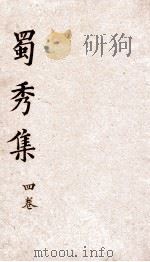 研狗
蜀秀集
四卷
mtoou.info